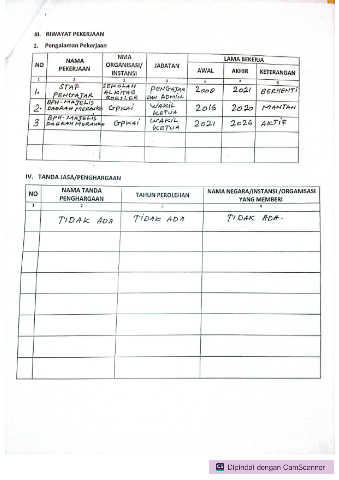 III. RIWAYAT PEKERJAAN
1. Pengalaman Pekerjaan
NO NAMA PEKERJAAN NMA ORGANISASI/ INSTANSI JABATAN LAMA BEKERJA
AWAL AKHIR KETERANGAN
1 2 3 4 5 6
1. STAF PENGAJAR SEKOLAH ALKITAB PENGAJAR DAN ADMIN 2008 2021 BERHENTI
2. BPH-MAJELIS DAERAH MERAUKE GPKAI WAKIL KETUA 2016 2020 MANTAN
3 BPH-MAJELIS DAERAH MERAUKE GPKAI WAKIL KETUA 2021 2026 AKTIF
IV. TANDA JASA/PENGHARGAAN
NO NAMA TANDA PENGHARGAAN TAHUN PEROLEHAN NAMA NEGARA/INSTANSI/ORGANISASI YANG MEMBERI
1 2 3 4
TIDAK ADA TIDAK ADA TIDAK ADA.
CS Dipindai dengan CamScanner